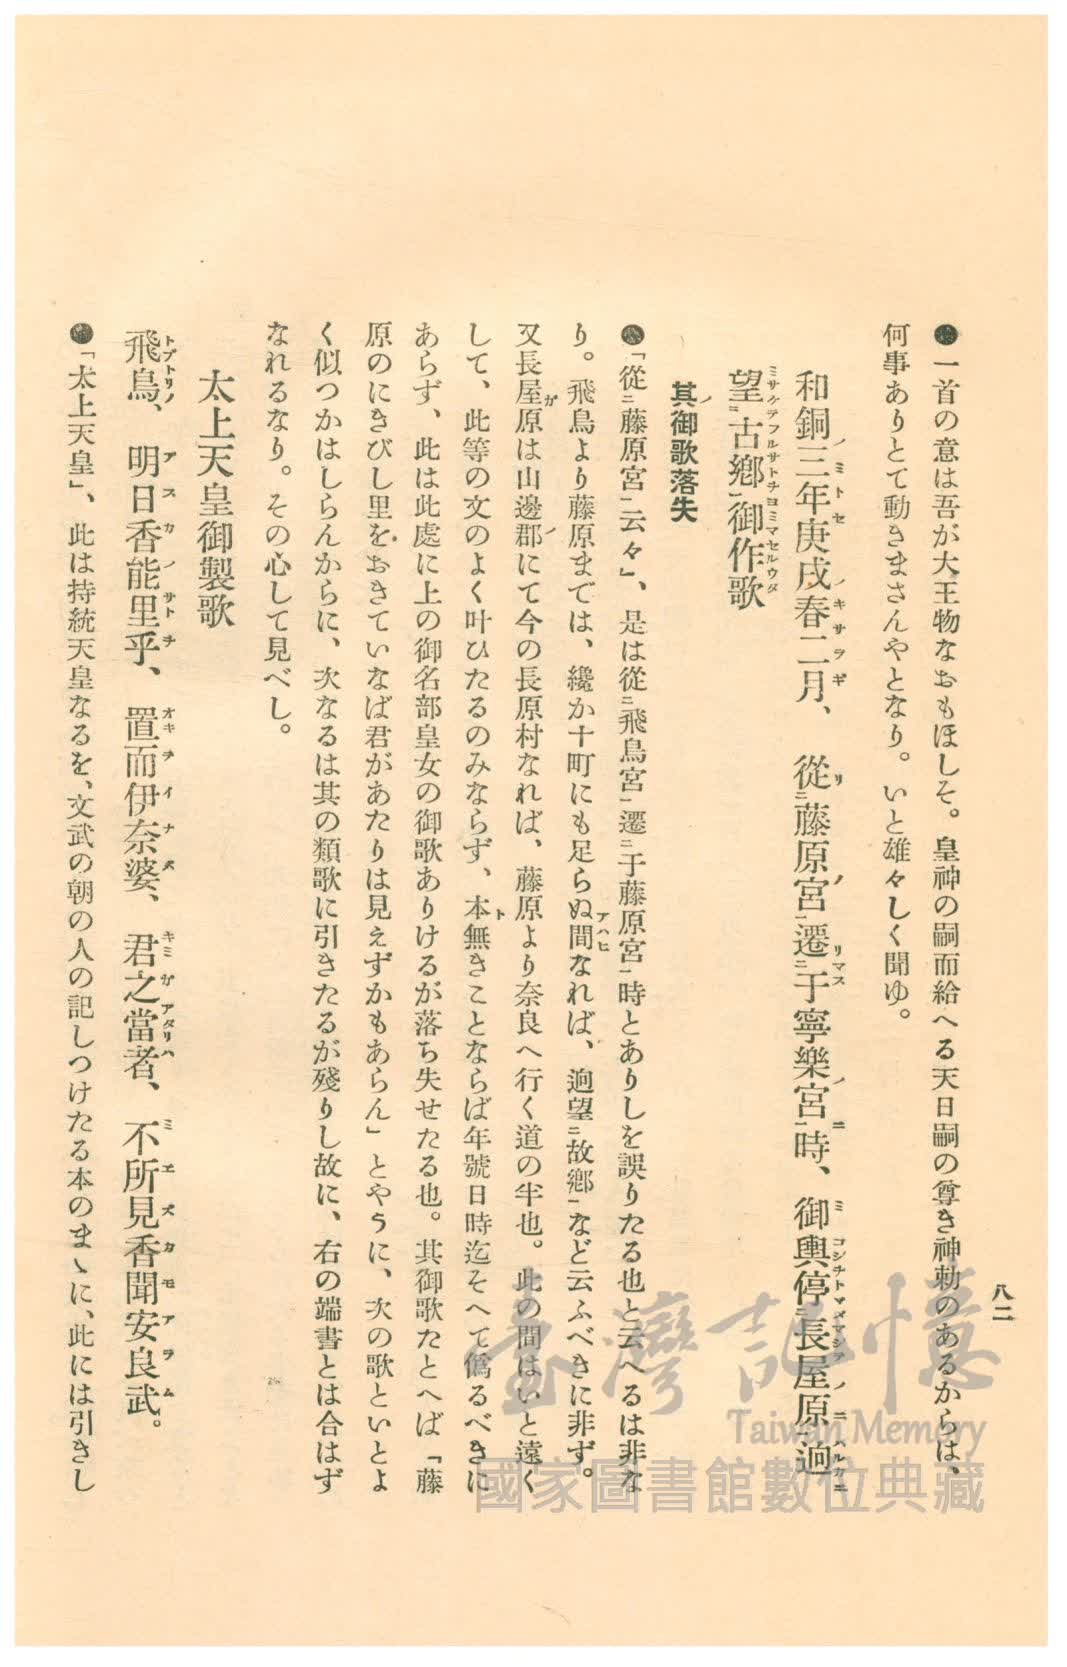 八二
●一首の意は吾が大王物なおもほしそ。皇神の嗣而給へる天日嗣の尊き神勅のあるからは、
何事ありとて動きまさんやとなり。いと雄々しく聞ゆ。
和銅三年庚戌春二月、從二藤原宮一遷二于寧樂宮一時、御輿停二長屋原一迥
望二古鄕一御作歌
其御歌落失
●「從二藤原宮一云々」、是は從二飛鳥宮一遷二于藤原宮一時とありしを誤りたる也と云へるは非な
り。飛鳥より藤原までは、纔か十町にも足らぬ間なれば、迥望二故鄕一など云ふべきに非ず。
又長屋原は山邊郡にて今の長原村なれば、藤原より奈良へ行く道の半也。此の間はいと遠く
して、此等の文のよく叶ひたるのみならず、本無きことならば年號日時迄そへて僞るべきに
あらず、此は此處に上の御名部皇女の御歌ありけるが落ち失せたる也。其御歌たとへば「藤
原のにきびし里をおきていなば君があたりは見えずかもあらん」とやうに、次の歌といとよ
く似つかはしらんからに、次なるは其の類歌に引きたるが殘りし故に、右の端書とは合はず
なれるなり。その心して見べし。
太上天皇御製歌
飛鳥、明日香能里乎、置而伊奈婆、君之當者、不所見香聞安良武。
●「太上天皇」、此は持統天皇なるを、文武の朝の人の記しつけたる本のまゝに、此には引きし
臺灣記憶
Taiwan Memory
國家圖書館數位典藏